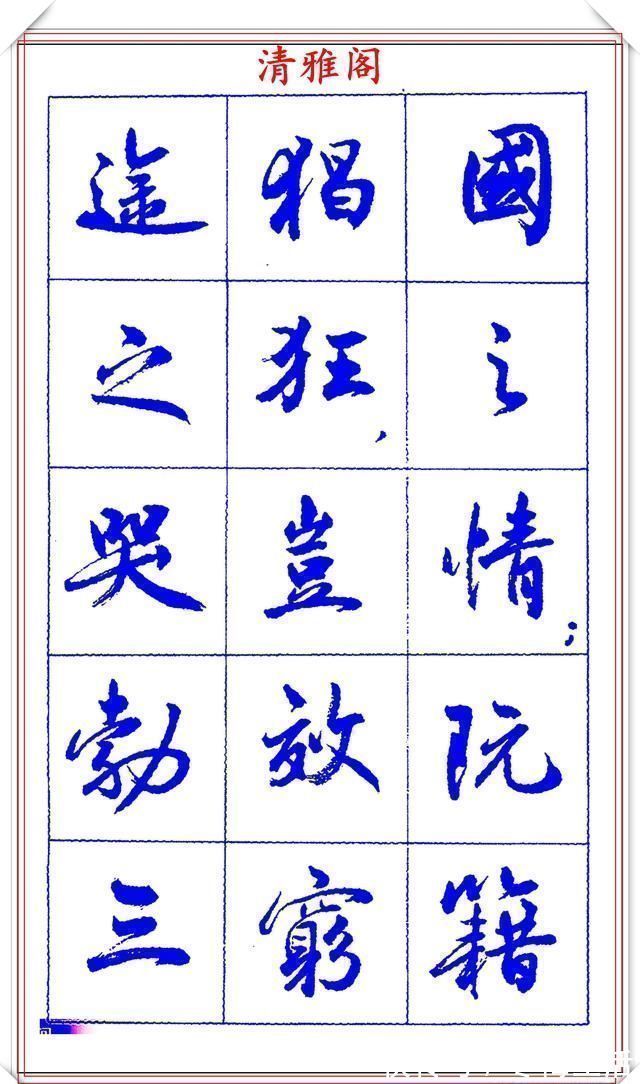 清雅阁
國之情；阮籍
猖狂，豈效窮
途之哭勃三